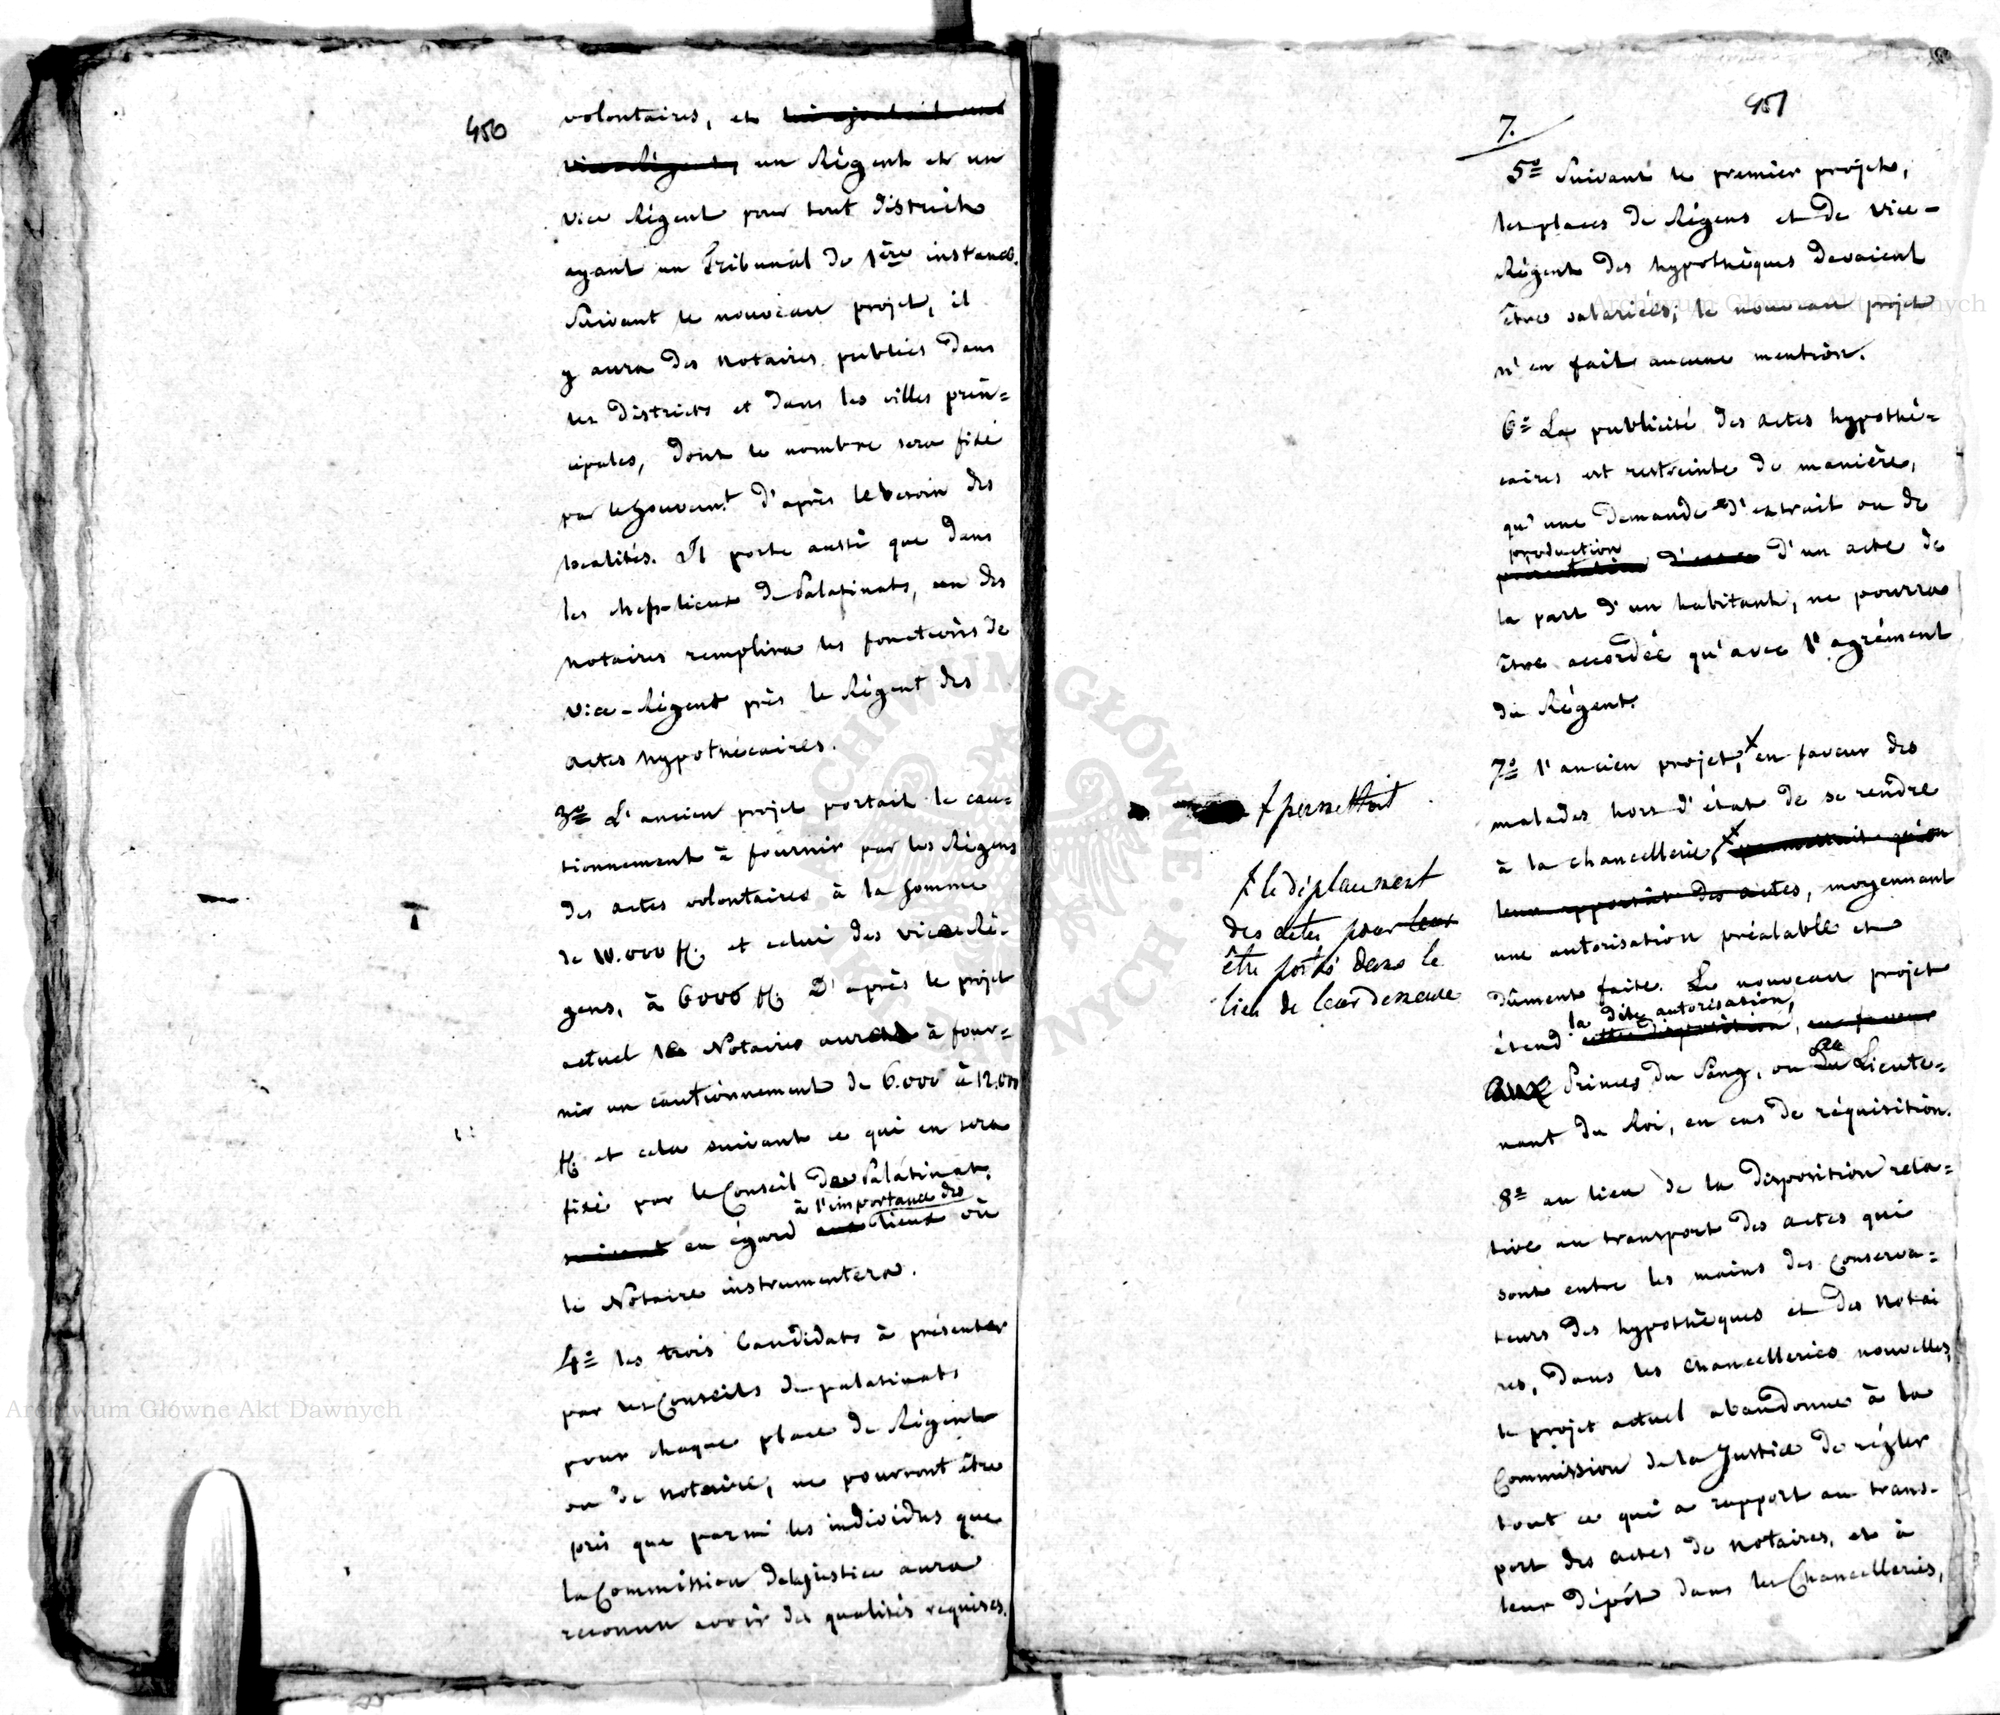 450
volontaires, et lui ajoutait un
vice Régent, un Régent et un
vice Régent pour tout district
ayant un Tribunal de 1ère instance.
Suivant le nouveau projet, il
y aura des notaires publics dans
les districts et dans les villes prin=
cipales, dont le nombre sera fixé
par le gouvernt. d'après le besoin des
localités. Il porte aussi que dans
les chefs-lieux de Palatinats, un des
notaires remplira les fonctions de
vice-Régent près le Régent des
actes hypothécaires.
3º L'ancien projet portait le cau=
tionnement à fournir par les Régens
des actes volontaires à la somme
de 10.000 fl. et celui des vice Ré-
gens, à 6000 fl. D'après le projet
actuel le Notaire aura à four=
nir un cautionnement de 6.000 à 12.000
fl. et cela suivant ce qui en sera
fixé par le Conseil de Palatinat,
à l'importance des
suivant eu égard aux lieux où
le Notaire instrumentera.
4º les trois Candidats à présenter
par les Conseils de palatinats
pour chaque place de Régent
ou de notaire, ne pourront être
pris que parmi les individus que
la Commission de la justice aura
reconnu avoir des qualités requises.
451
7.
5º Suivant le premier projet,
les places de Régens et de vice-
Régent des hypothèques devaient
être salariées; le nouveau projet
n'en fait aucune mention.
6º La publicité des actes hypothé=
caires est restreinte de manière,
qu'une demande d'extrait ou de
production
présentation d'un acte de
la part d'un habitant, ne pourra
être accordée qu'avec l'agrément
du Régent.
7º l'ancien projet, en faveur des
malades hors d'état de se rendre
à la chancellerie, permettait qu'on
leur apportât des actes, moyennant
une autorisation préalable et
dûment faite. Le nouveau projet
la dite autorisation,
étend cette disposition, en faveur
aux Princes du Sang, ou au Lieute=
nant du Roi, en cas de réquisition.
8º au lieu de la disposition rela=
tive au transport des actes qui
sont entre les mains des Conserva=
teurs des hypothèques et des notai
res, dans les chancelleries nouvelles,
le projet actuel abandonne à la
Commission de la Justice de régler
tout ce qui a rapport au trans-
port des actes de notaires, et à
leur dépôt dans les Chancelleries,
permettoit
le déplacement
des actes pour leur
être portés dans le
lieu de leur demeure
Archiwum Główne Akt Dawnych
Archiwum Główne Akt Dawnych
ARCHIWUM GŁÓWNE AKT DAWNYCH